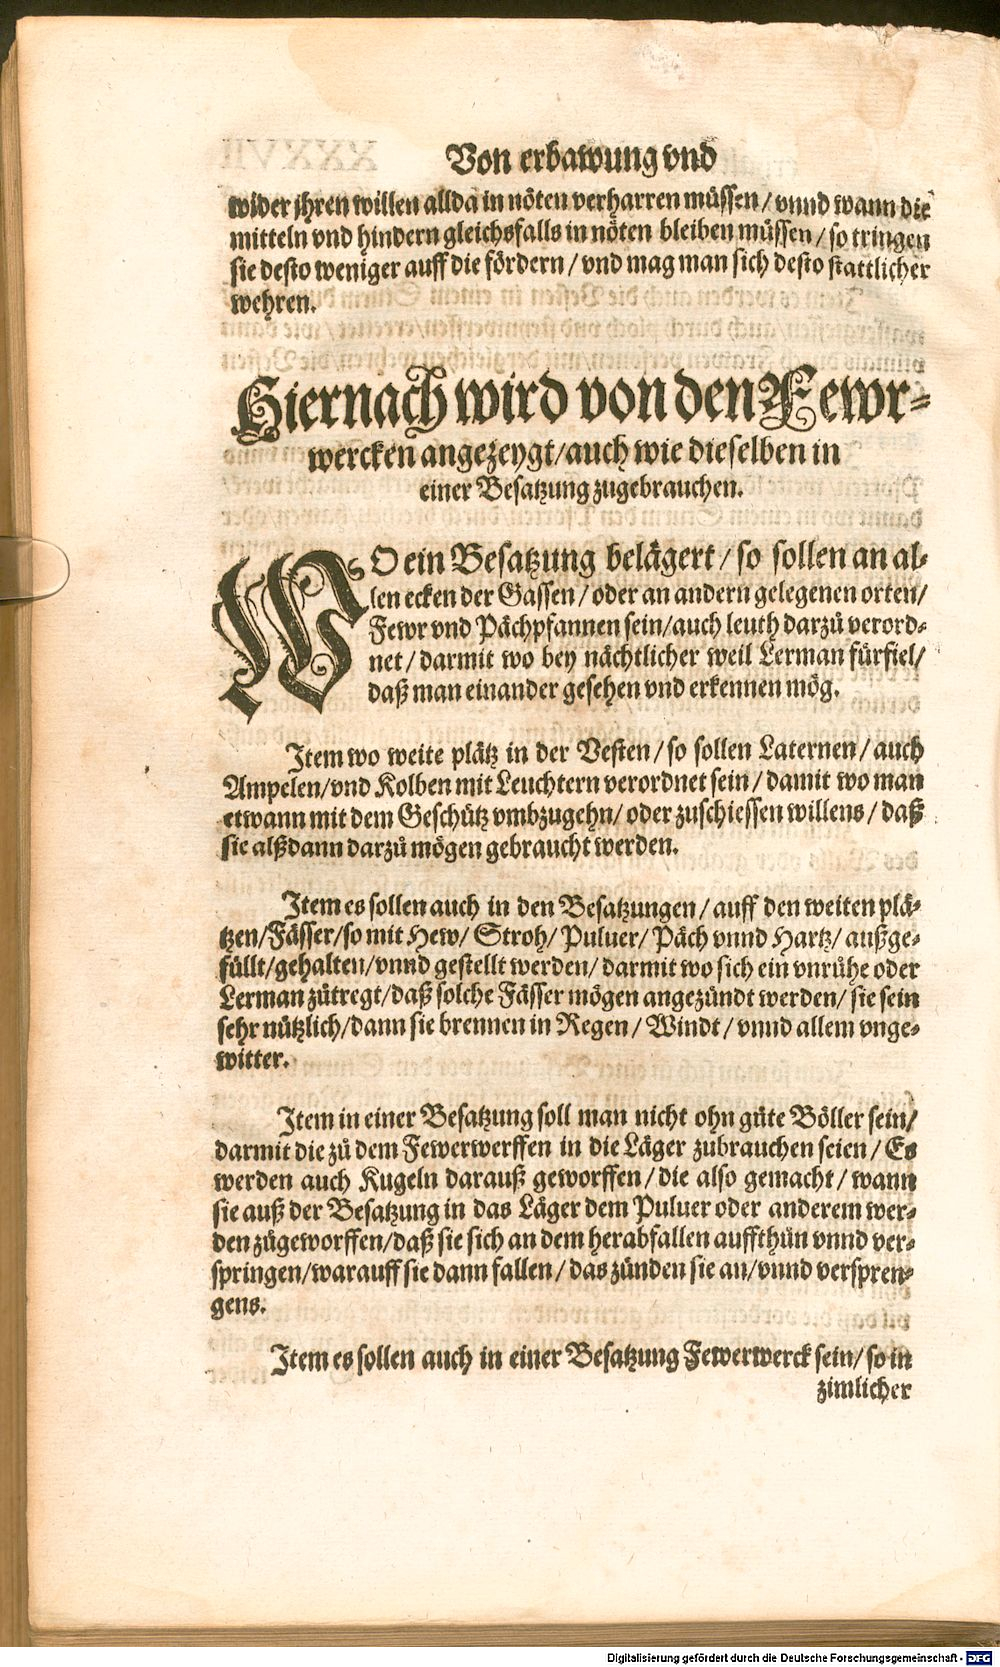 Von erbawung vnd
wider jhren willen allda in nöten verharren müssen / vnnd wann die
mitteln vnd hindern gleichsfalls in nöten bleiben müssen / so tringen
sie desto weniger auff die fördern / vnd mag man sich desto stattlicher
wehren.
Hiernach wird von den Fewr-
wercken angezeygt / auch wie dieselben in
einer Besatzung zugebrauchen.
WO ein Besatzung belägert / so sollen an al-
len ecken der Gassen / oder an andern gelegenen orten /
Fewr vnd Pächpfannen sein / auch leuth darzů verord-
net / darmit wo bey nächtlicher weil Lerman fürfiel /
daß man einander gesehen vnd erkennen mög.
Item wo weite plätz in der Vesten / so sollen Laternen / auch
Ampelen / vnd Kolben mit Leuchtern verordnet sein / damit wo man
etwann mit dem Geschütz vmbzugehn / oder zuschiessen willens / daß
sie alßdann darzů mögen gebraucht werden.
Item es sollen auch in den Besatzungen / auff den weiten plä-
tzen / Fässer / so mit Hew / Stroh / Puluer / Päch vnnd Hartz / außge-
füllt / gehalten / vnnd gestellt werden / darmit wo sich ein vnrůhe oder
Lerman zůtregt / daß solche Fässer mögen angezündt werden / sie sein
sehr nützlich / dann sie brennen in Regen / Windt / vnnd allem vnge-
witter.
Item in einer Besatzung soll man nicht ohn gůte Böller sein /
darmit die zů dem Fewerwerffen in die Läger zůbrauchen seien / Es
werden auch Kugeln darauß geworffen / die also gemacht / wann
sie auß der Besatzung in das Läger dem Puluer oder anderem wer-
den zůgeworffen / daß sie sich an dem herabfallen auffthůn vnnd ver-
springen / warauff sie dann fallen / das zünden sie an / vnnd verspren-
gens.
Item es sollen auch in einer Besatzung Fewerwerck sein / so in
zimlicher
Digitalisierung gefördert durch die Deutsche Forschungsgemeinschaft - DFG